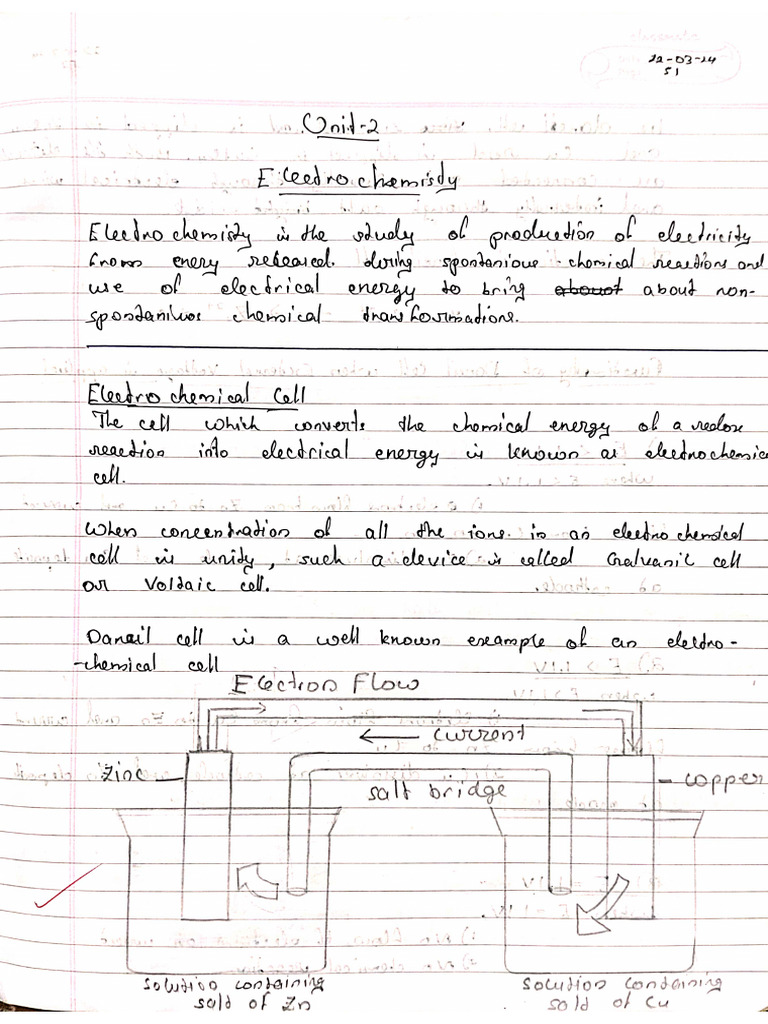 22-03-24
51
Unit-2
Electrochemistry
Electrochemisty is the study of production of electricity
from enery released during spontanious chemical reactions and
use of electrical energy to bring about about non-
spontanious chemical transformations.
Electrochemical Cell
The cell which converts the chemical energy of a redox
reaction into electrical energy is known as electrochemica
cell.
When concentration of all the ions in an electrochemical
cell is unity, such a device is called Galvanic cell
or Voltaic cell.
Danail cell is a well known example of an electro-
-chemical cell
Electron Flow
current
Zinc
copper
salt bridge
solution containing
sald of Zn
solution containing
sald of Cu